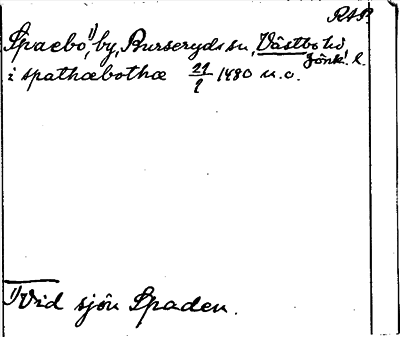 RAP.
Spaebo,¹⁾ by, Burseryds sn, Västbo hd
Jönk. l.
i spathæbothæ 21/9 1480 u.o.
¹⁾Vid sjön Spaden.